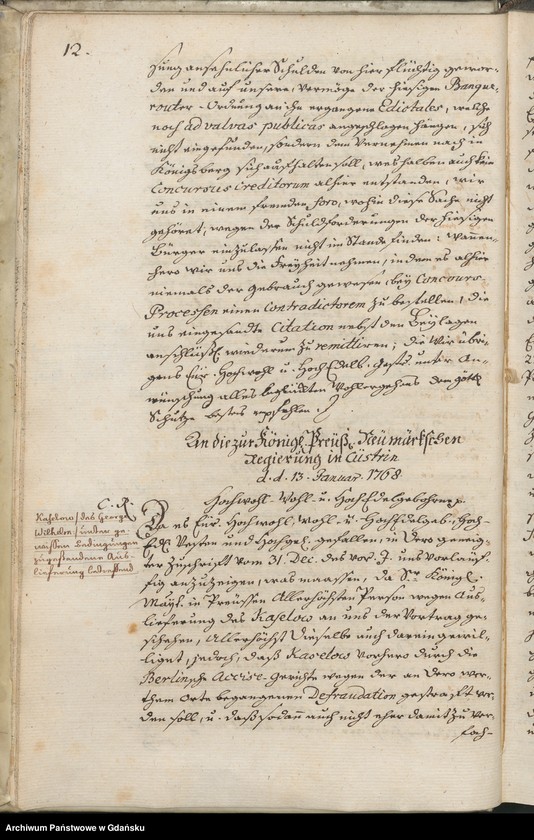 12.
zung ansehnlicher Schulden von hier flüchtig gewor-
den und auf unsere, vermöge der hiesigen Banque-
router-Ordnung an ihn ergangene Edictales, welche
noch ad valvas publicas angeschlagen hängen, sich
nicht eingefunden, sondern dem Vernehmen nach in
Königsberg sich aufhalten soll, weshalben auch kein
Concursus Creditorum alhier entstanden, wir
uns in einem fremden foro, wohin diese Sache nicht
gehöret, wegen der Schuldforderungen der hiesigen
Bürger einzulassen nicht im Stande finden: Wannen-
hero wir uns die Freyheit nehmen, indem es alhier
niemals der Gebrauch gewesen, bey Concours-
Processen einen Contradictorem zu bestellen, die
uns eingesandte Citation nebst den Beylagen
anschlüßl. wiederum zu remittiren; die wir übri-
gens Eur. Hochwohl u. HochEdelb. Gestr. unter An-
wünschung alles Wohlergehens dem göttl.
Schutze bestens empfehlen.
An die zur Königl. Preuß. Neumärkschen
Regierung in Cüstrin
d. d. 13. Januar. 1768.
C. R.
Kaselow, des George
Wilhelm, unter ge-
wissen Bedingungen
zugestandene Aus-
lieferung betreffend
Hochwoll- Wohl- u. HochEdelgebohrne p.
Da es Eur. Hochwohl, Wohl- u. HochEdelgeb., Hoch-
Edl. Vesten und Hochgel. gefallen, in Dero geneig-
ter Zuschrift vom 31. Dec. des vor. J. uns vorläuf-
fig anzuzeigen, was maassen, da Sr. Königl.
Mayt. in Preussen Allerhöchsten Person wegen Aus-
lieferung des Kaselow an uns der Vortrag ge-
schehen, Allerhöchst Dieselbe auch darein gewil-
liget, jedoch, daß Kaselow vorhero durch die
Berlinsche Accise-Gerichte wegen der an dero wer-
them Orte begangenen Defraudation gestrafft wer-
den soll, u. daß sodann auch nicht eher damit zu ver-
fah-
Archiwum Państwowe w Gdańsku